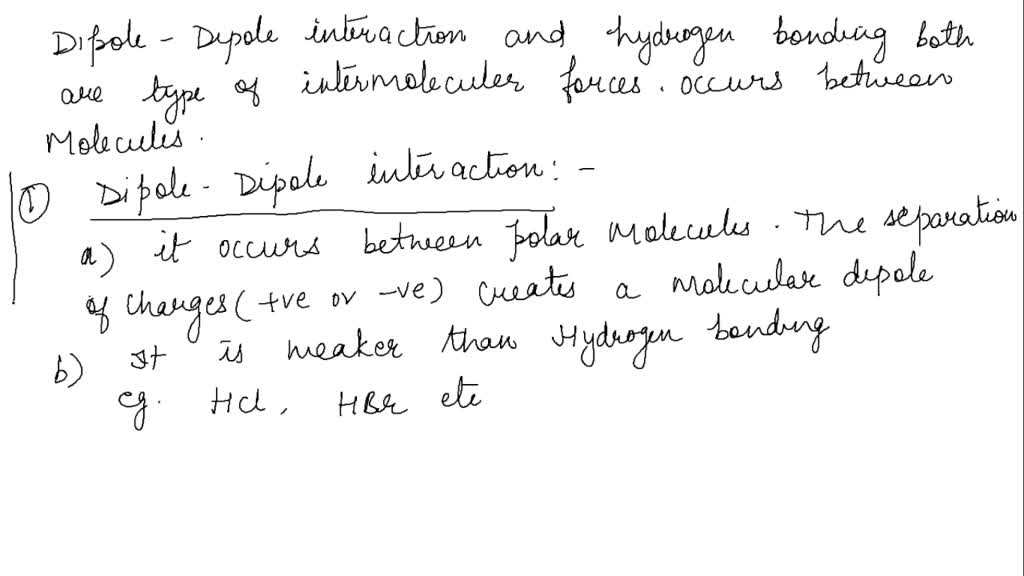 Dipole - Dipole interaction and hydrogen bonding both
are type of intermolecular forces. occurs between
Molecules.
① Dipole - Dipole interaction: -
a) it occurs between polar Molecules. The separation
of charges (+ve or -ve) creates a molecular dipole
b) It is weaker than Hydrogen bonding
eg. HCl, HBr etc